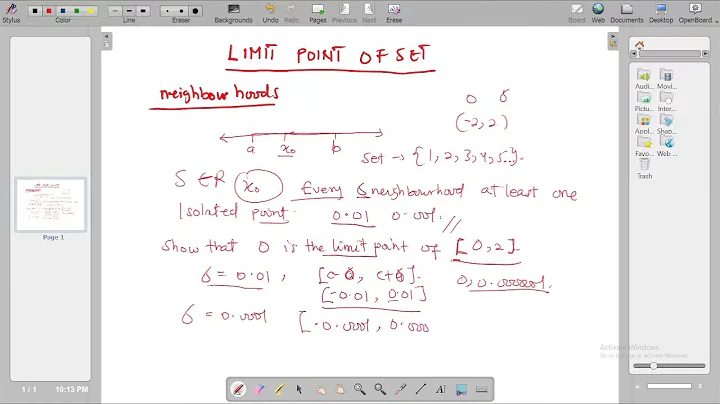 Stylus
Color
Line
Eraser
Backgrounds
Undo
Redo
Pages
Previous
Next
Erase
Board
Web
Documents
Desktop
OpenBoard
LIMIT POINT OF SET
neighbourhoods
0 δ
(-2, 2)
a x₀ b
Set → {1, 2, 3, 4, 5...}.
S ∈ R x₀ Every δ neighbourhood at least one
Isolated point. 0.01 0.001. //
Show that 0 is the limit point of [0, 2].
δ = 0.01,
[-0.01, 0.01]
δ = 0.0001 [-0.0001, 0.000
Page 1
Audi...
Movi...
Pictu...
Inter...
Anim...
Appli...
Flash
Shap...
Favo...
Web ...
Trash
Activate Windows
Go to Settings to activate Windows.
1 / 1
10:13 PM